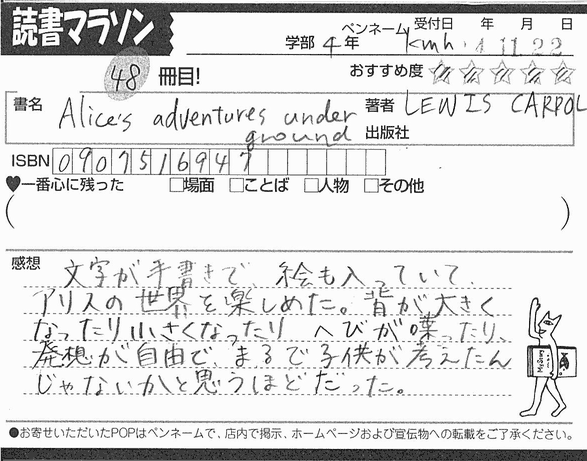 読書マラソン
学部 4 年 ペンネーム kmh. 受付日 年 月 日
4 11 22
48 冊目! おすすめ度 ☆☆☆☆☆
書名 Alice's adventures under ground
著者 LEWIS CARROL
出版社
ISBN 0907516947
♥一番心に残った □場面 □ことば □人物 □その他
( )
感想 文字が手書きで、絵も入っていて、
アリスの世界を楽しめた。背が大きく
なったり小さくなったり へびが喋ったり、
発想が自由で、まるで子供が考えたん
じゃないかと思うほどだった。
●お寄せいただいたPOPはペンネームで、店内で掲示、ホームページおよび宣伝物への転載をご了承ください。